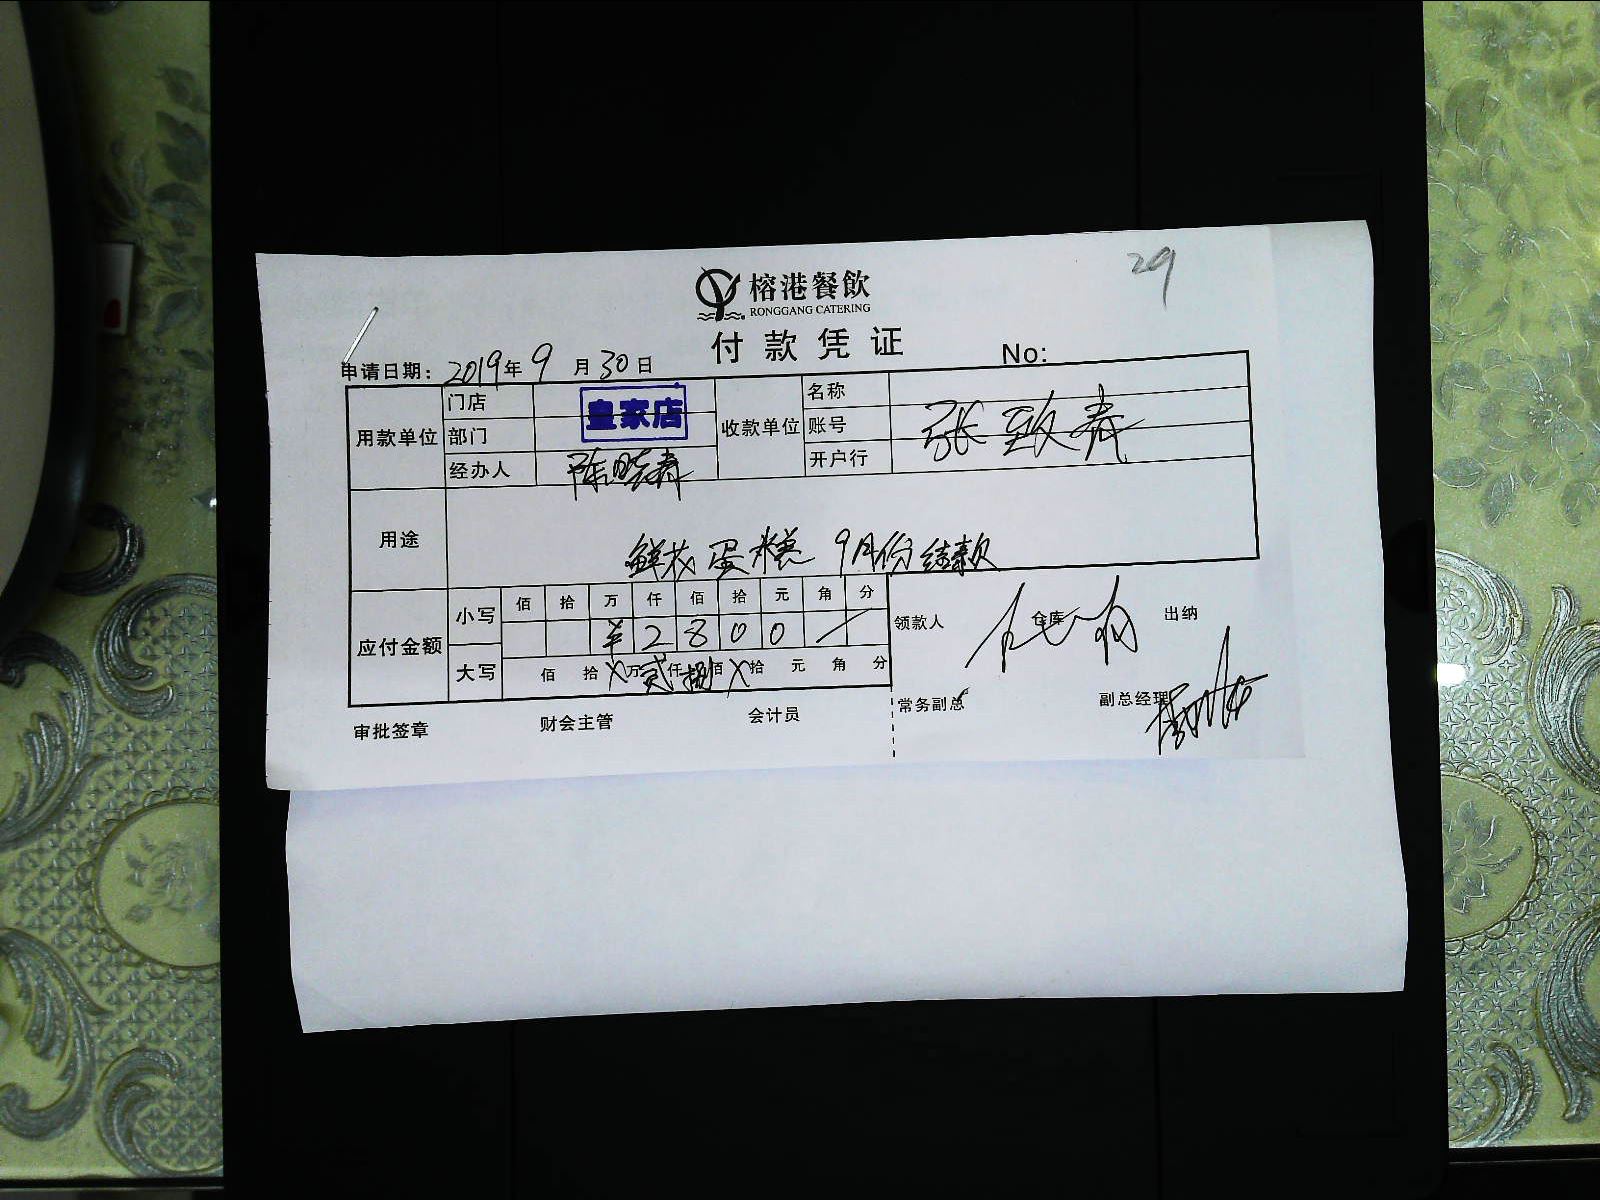 29
榕港餐飲
RONGGANG CATERING
付款凭证
No:
申请日期: 2019年9月30日
用款单位 门店 皇家店 收款单位 名称
部门 账号 张致春
经办人 陈晓春 开户行
用途 鲜花蛋糕 9月份结款
应付金额 小写 佰 拾 万 仟 佰 拾 元 角 分
¥ 2 8 0 0
大写 佰 拾 万 贰 仟 捌 佰 拾 元 角 分
领款人 仓库 出纳
常务副总 副总经理
审批签章 财会主管 会计员